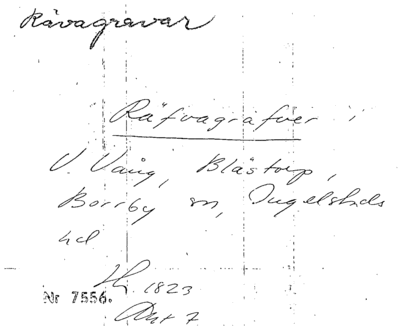 Rävagravar
Räfvagräfver i
V. Vång, Blästorp,
Borrby sn, Ingelstads
hd
1823
Nr 7556.
Akt 7